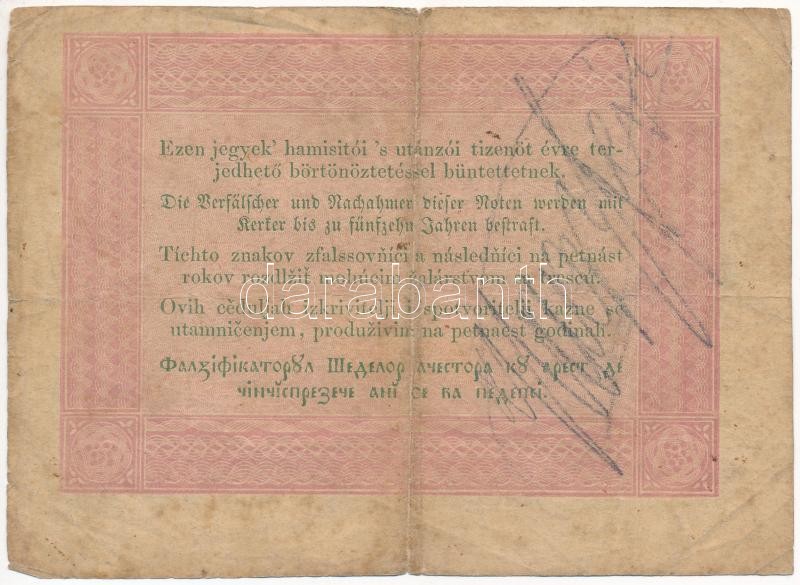 Ezen jegyek' hamisitói 's utánzói tizenöt évre ter-
jedhető börtönöztetéssel büntettetnek.
Die Verfälscher und Nachahmer dieser Noten werden mit
Kerker bis zu fünfzehn Jahren bestraft.
Tíchto znakov zfalssovňíci a následňíci na petnást
rokov rozdlžiť mohúcim žalárstvom sa trescú.
Ovih cěduljah izkrivitelji i spotvoritelji kazne se
utamničenjem, produživim na petnaest godinah.
Фалꙁіфікаторꙋл Шеделор ачестора кꙋ арест де
чінчіспреꙁече ані се ва педепсі.
darabanth